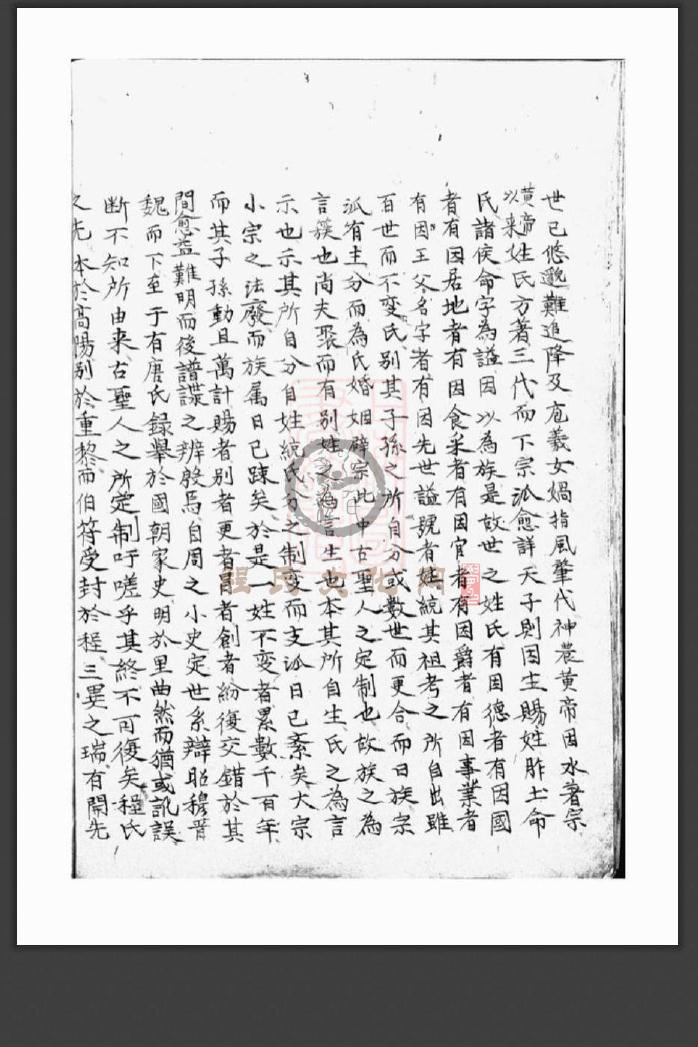 世已悠邈難追降及庖羲女媧指風肇代神農黄帝因水著宗
黄帝以来姓氏方著三代而下宗派愈詳天子則因生賜姓胙土命
氏諸侯命字為謚因以為族是故世之姓氏有因德者有因國
者有因居地者有因食采者有因官者有因爵者有因事業者
有因王父名字者有因先世謚號有姓統其祖考之所自出雖
百世而不变氏别其子孫之所自分或数世而更合而曰族宗
派有主分而為氏婚姻辟宗此中古聖人之定制也故族之為
言簇也尚夫聚而有别姓之為言生也本其所自生氏之為言
示也示其所自分自姓統氏分之制变而支派日已紊矣大宗
小宗之法廢而族属日已踈矣於是一姓不变者累數千百年
而其子孫動且萬計賜者别者更者冒者創者紛復交錯於其
間愈益難明而後譜諜之辨殷焉自周之小史定世系辯昭穆晋
魏而下至于有唐氏録舉於國朝家史明於里曲然而猶或訛誤
断不知所由来古聖人之所定制吁嗟乎其終不可復矣程氏
之先本於高陽别於重黎而伯符受封於程三異之瑞有開先
程氏文化網